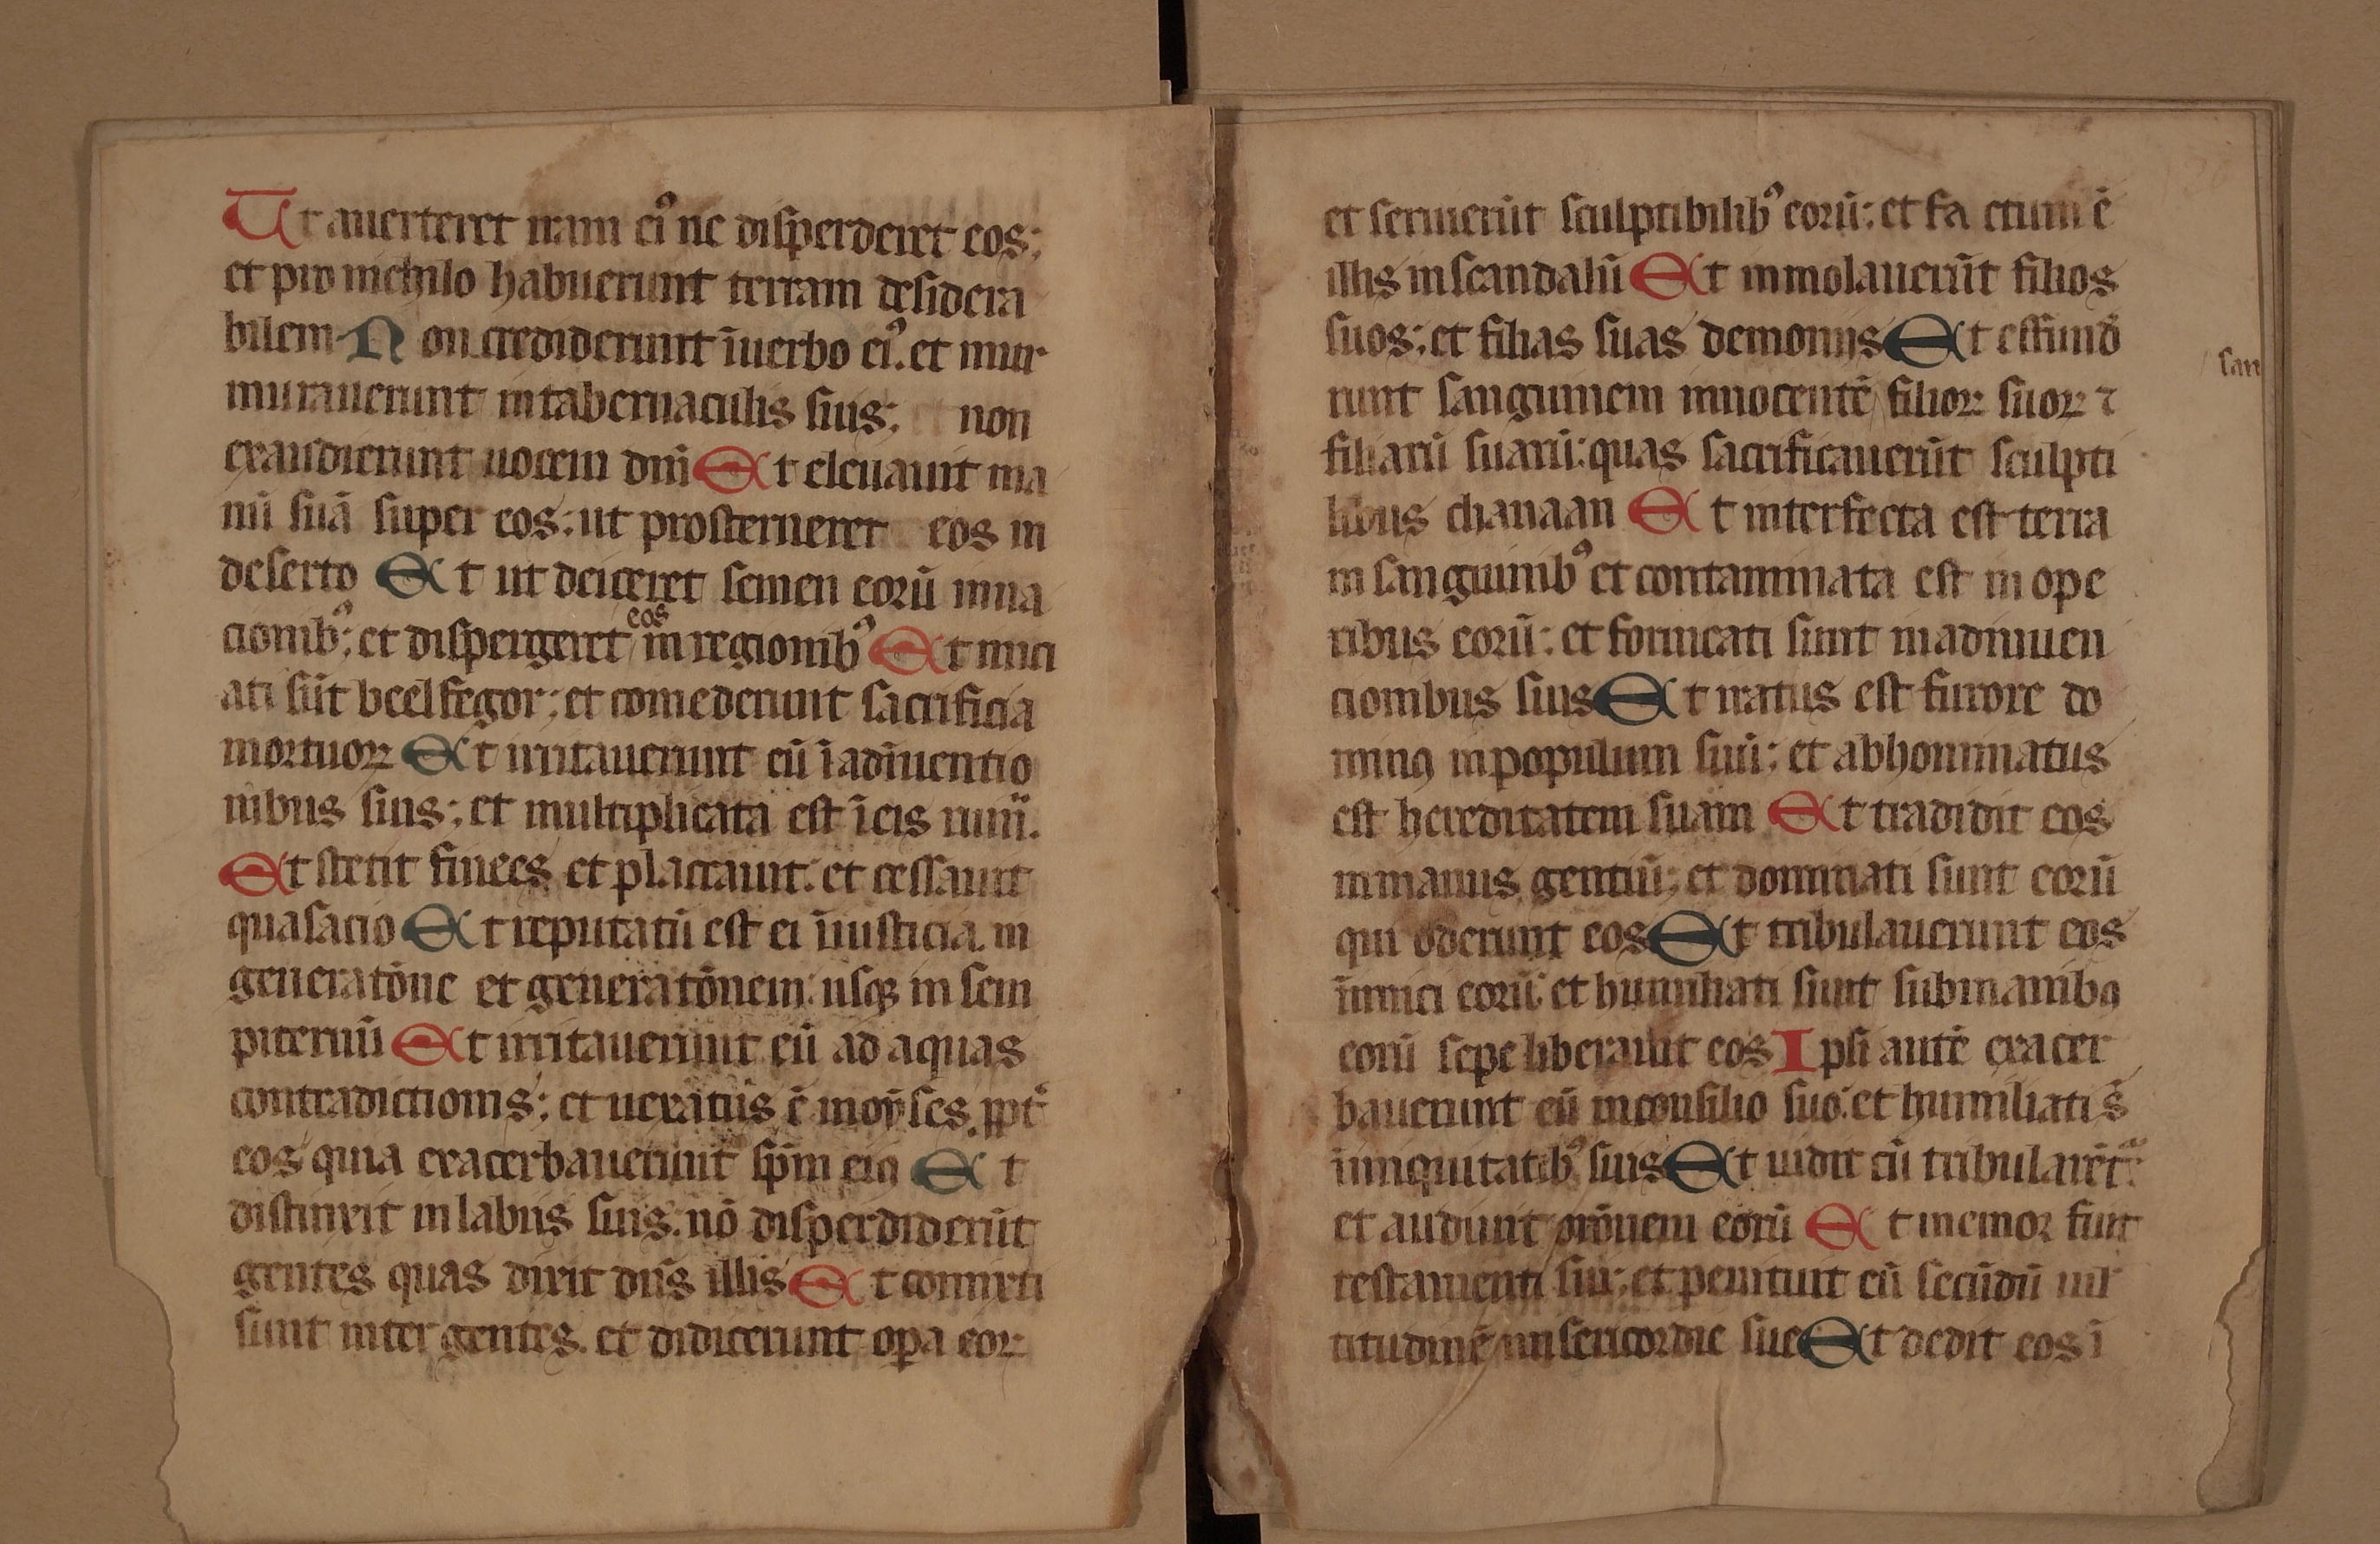 Ut auerteret iram eiꝰ ne disperderet eos;
et pro nichilo habuerunt terram desidera
bilem Non crediderunt īuerbo eiꝰ. et mur
murauerunt intabernaculis suis; et non
exaudierunt uocem dn̄i Et eleuauit ma
nū suā super eos; ut prosterneret eos in
deserto Et ut deiceret semen eorū inna
cionibꝰ; et dispergeret eos in regionibꝰ Et inici
ati sūt beelfegor; et comederunt sacrificia
mortuoꝝ Et irritauerunt eū ī adīuentio
nibus suis; et multiplicata est ī eis ruin̄.
Et stetit finees et placauit. et cessauit
quasacio Et reputatū est ei īiusticia. in
generatōne et generatōnem: usqꝫ in sem
piternū Et irritauerunt eū ad aquas
contradictionis; et uexatus ē moẏses. ꝓpt̄
eos quia exacerbauerunt sp̄m eiꝰ Et
distinxit inlabiis suis. nō disperdiderūt
gentes quas dixit dn̄s illis Et comixti
sunt inter gentes. et didicerunt oꝑa eoꝝ
et seruierūt sculptibilibꝰ eorū; et fa ctum ē
illis inscandalū Et immolauerūt filios
suos; et filias suas demoniis Et effundē
runt sanguinem innocentē filioꝝ suoꝝ ⁊
san
filiarū suarū: quas sacrificauerūt sculpti
libus chanaan Et interfecta est terra
in sanguinibꝰ et contaminata est in ope
ribus eorū; et fornicati sunt inadinuen
cionibus suis Et iratus est furore do
minꝰ inpopulum suū; et abhominatus
est hereditatem suam Et tradidit eos
inmanus gentiū; et dominati sunt eorū
qui oderunt eos Et tribulauerunt eos
īimici eorū et humiliati sunt submanibꝰ
eorū sepe liberauit eos Ipsi autē exacer
bauerunt eū inconsilio suo. et humiliati s̄
iniquitatibꝰ suis Et uidit cū tribularēt̄
et audiuit orōnem eorū Et memor fuit
testamenti sui; et penituit eū secūdū ml
titudinē misericordie sue Et dedit eos ī